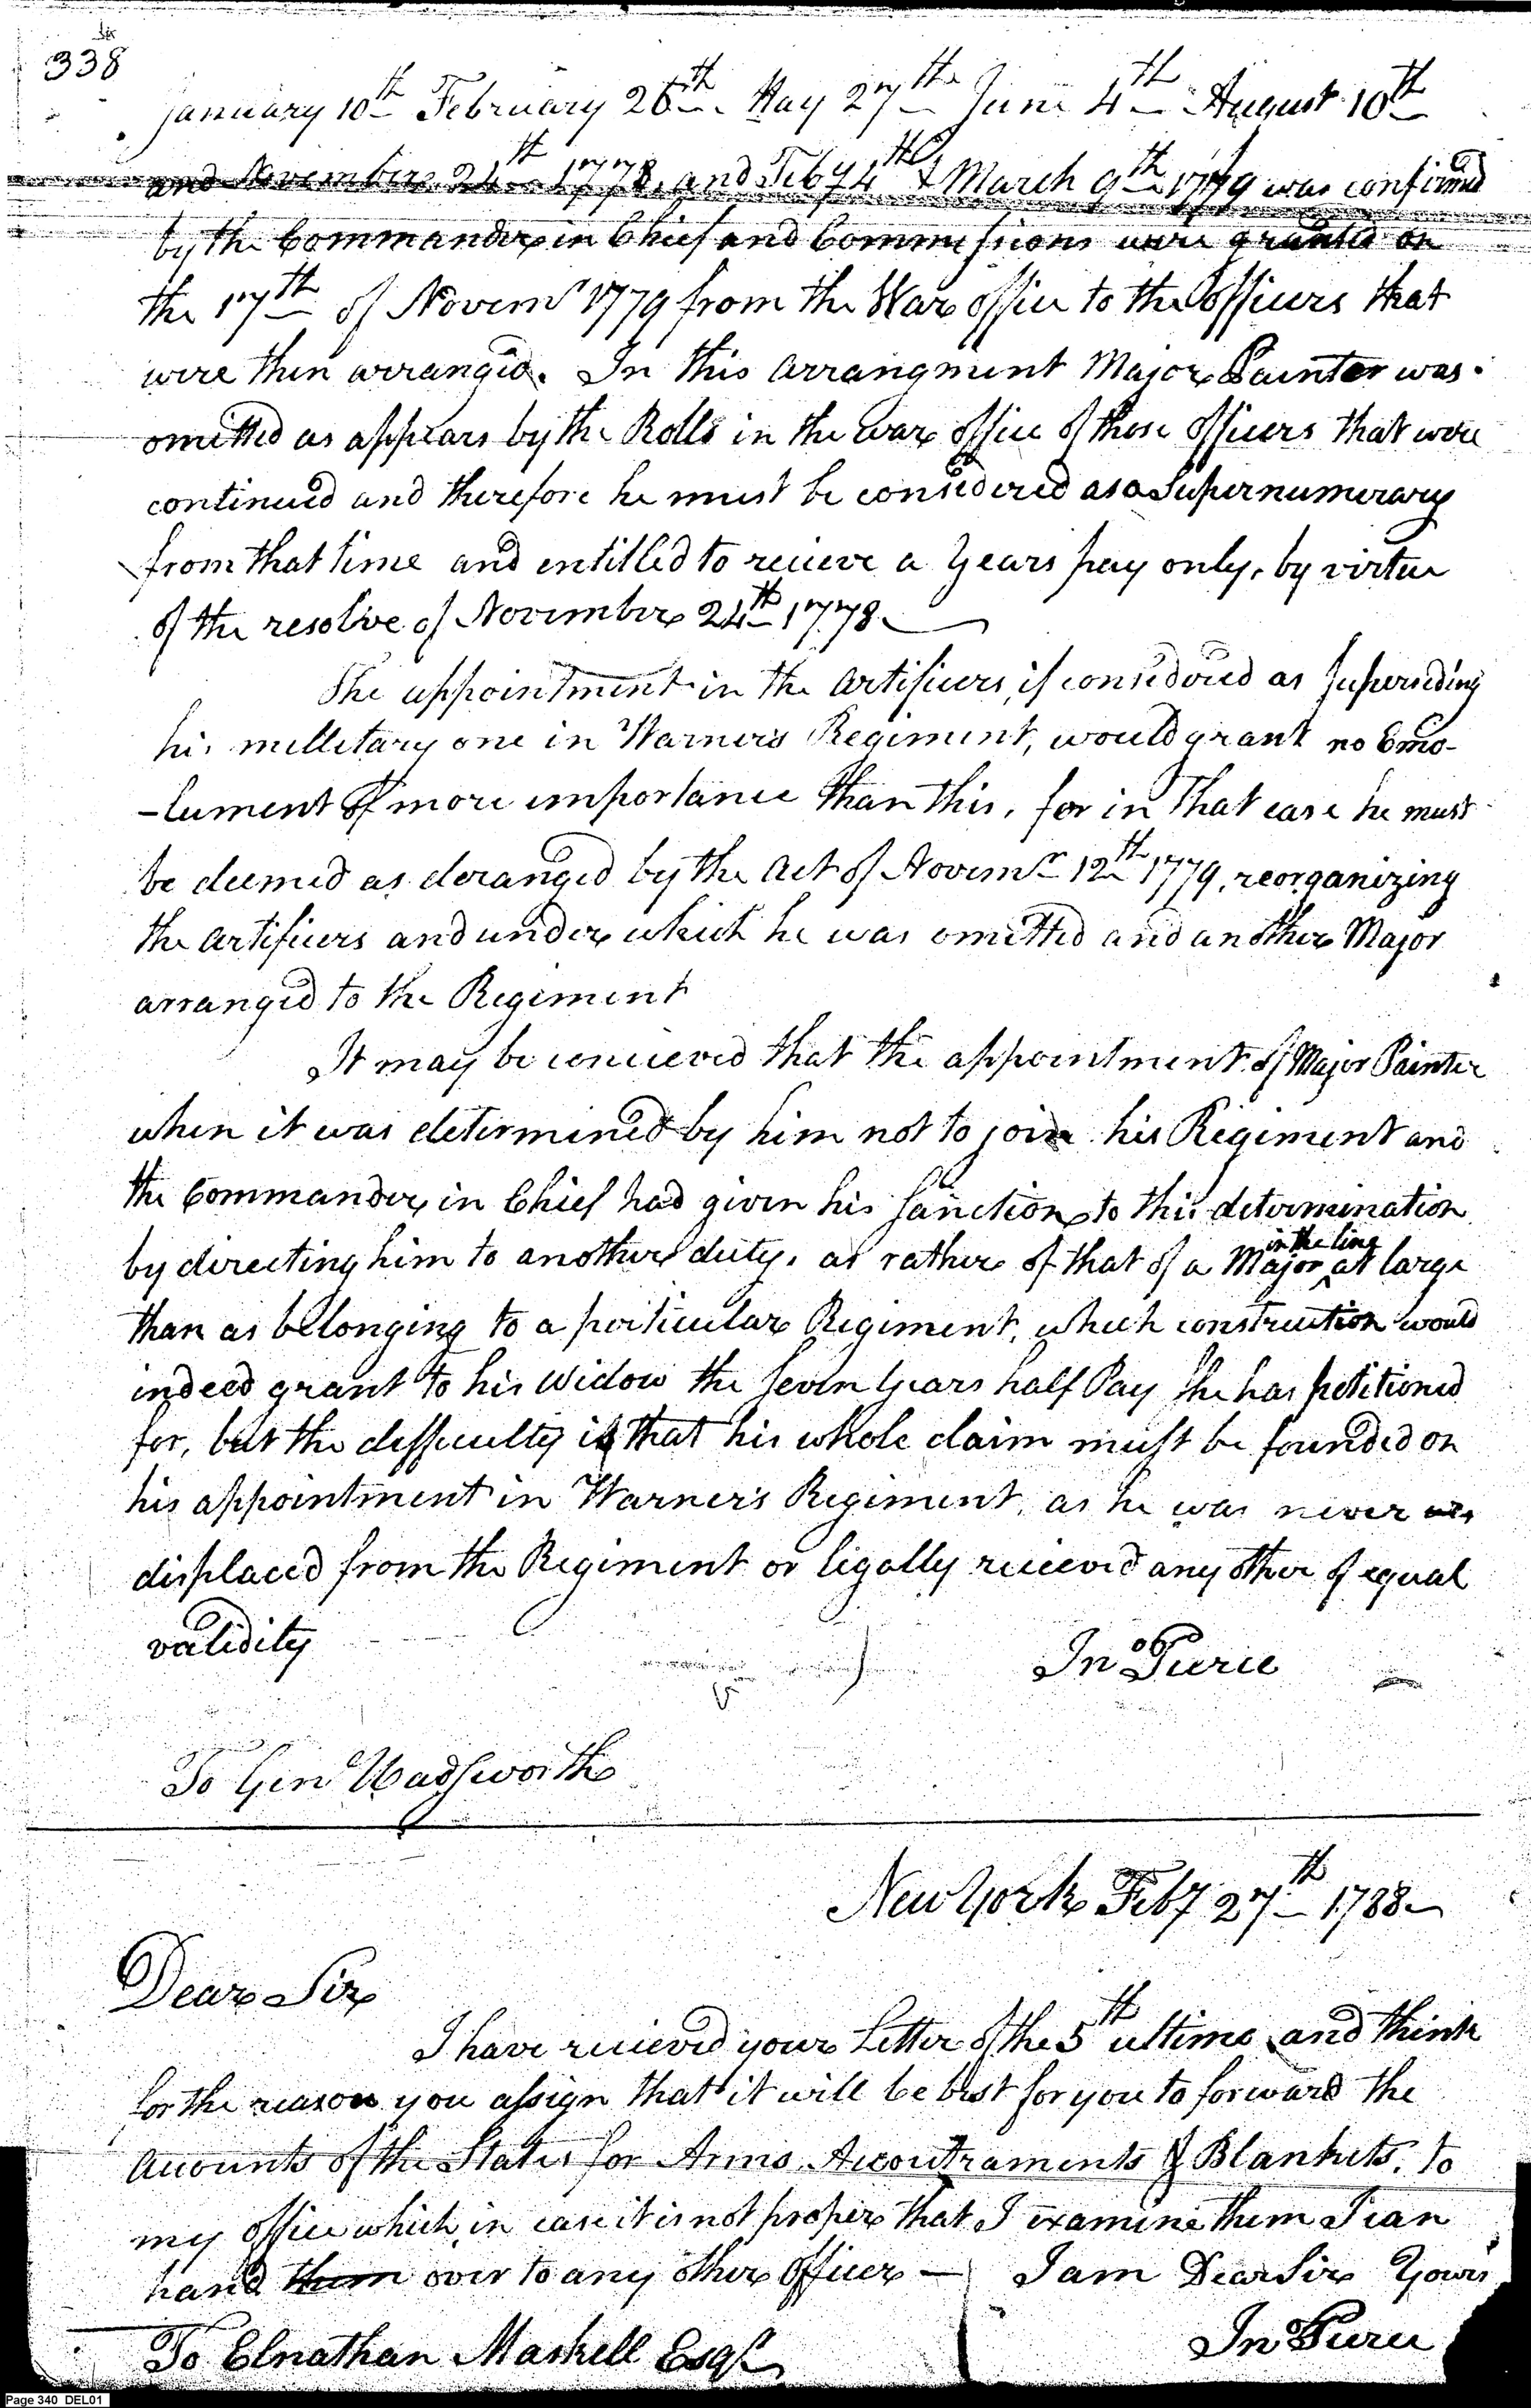 338
January 10th February 26th May 27th June 4th August 10th
and November 24th 1778, and Feby 4th & March 9th 1779 was confirmed
by the Commander in Chief and Commissions were granted on
the 17th of Novemr 1779 from the War office to the officers that
were then arranged. In this arrangment Major Painter was
omitted as appears by the Rolls in the war office of those officers that were
continued and therefore he must be considered as a Supernumerary
from that time and entitled to recieve a Years pay only, by virtue
of the resolve of November 24th 1778
The appointment in the Artificers, if considered as Superseding
his millitary one in Warner's Regiment, would grant no Emo-
-lument of more importance than this, for in that case he must
be deemed as deranged by the Act of Novemr 12th 1779, reorganizing
the artificers and under which he was omitted and another Major
arranged to the Regiment
It may be concieved that the appointment of Major Painter
when it was determined by him not to join his Regiment and
the Commander in Chief had given his Sanction to this determination
by directing him to another duty, as rather of that of a Major in the line at large
than as belonging to a particular Regiment, which construction would
indeed grant to his Widow the Seven Years half Pay She has petitioned
for, but the difficulty is that his whole claim must be founded on
his appointment in Warner's Regiment, as he was never
displaced from the Regiment or legally recieved any other of equal
validity
Jno Pierce
To Genl Wadsworth
New York Feby 27th 1788
Dear Sir
I have recieved your Letter of the 5th ultimo and think
for the reason you assign that it will be best for you to forward the
Accounts of the States for Arms, Accoutraments & Blankets, to
my office which in case it is not proper that I examine them I can
hand them over to any other Officer — I am Dear Sir Yours
Jno Pierce
To Elnathan Haskell Esqr
Page 340 DEL01